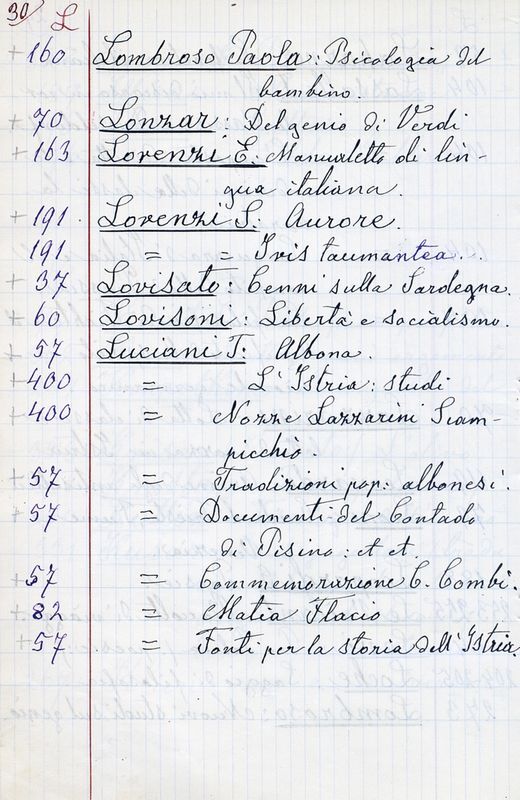 30 L
+ 160 Lombroso Paola: Psicologia del
bambino.
+ 70 Lonzar: Del genio di Verdi
+ 163 Lorenzi E. Manualetto di lin-
gua italiana.
+ 191. Lorenzi S: Aurore.
191 = = Iris taumantea.
+ 37 Lovisato: Cenni sulla Sardegna.
+ 60 Lovisoni: Libertà e socialismo.
+ 57 Luciani T: Albona.
+ 400 = L'Istria: studi
+ 400 = Nozze Lazzarini Scam-
picchio.
+ 57 = Tradizioni pop: albonesi.
+ 57 = Documenti del Contado
di Pisino: et et.
57 = Commemorazione C. Combi.
+ 82 = Matia Flacio
+ 57 = Fonti per la storia dell'Istria.